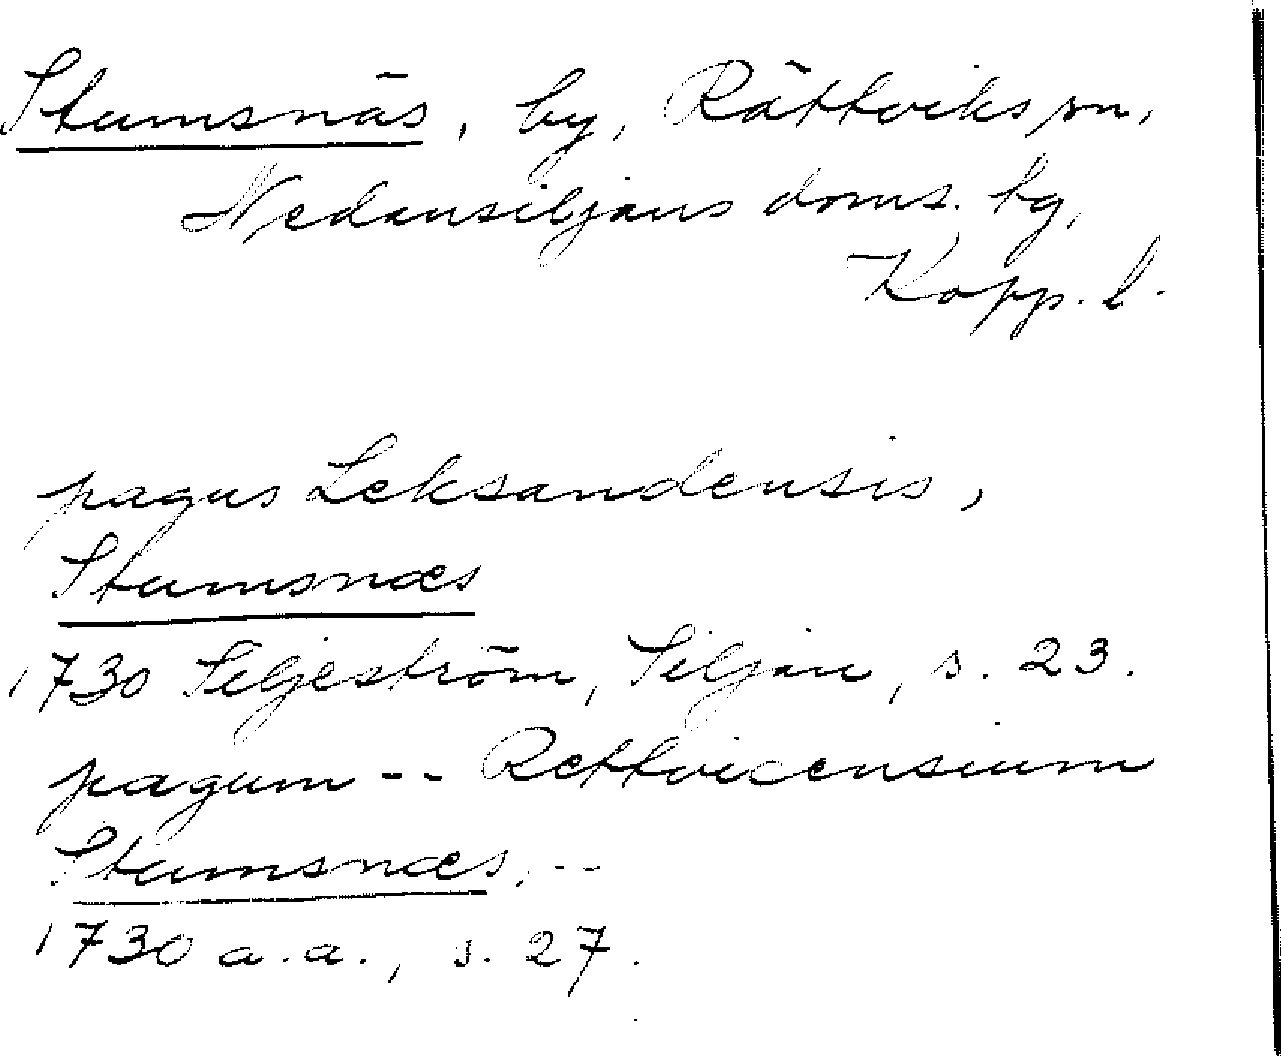 Stumsnäs, by, Rättviks sn,
Nedansiljans doms. hg,
Kopp. l.
pagus Leksandensis,
Stumsnæs
1730 Siljeström, Siljan, s. 23.
pagum -- Rettvicensium
Stumsnæs, --
1730 a.a., s. 27.